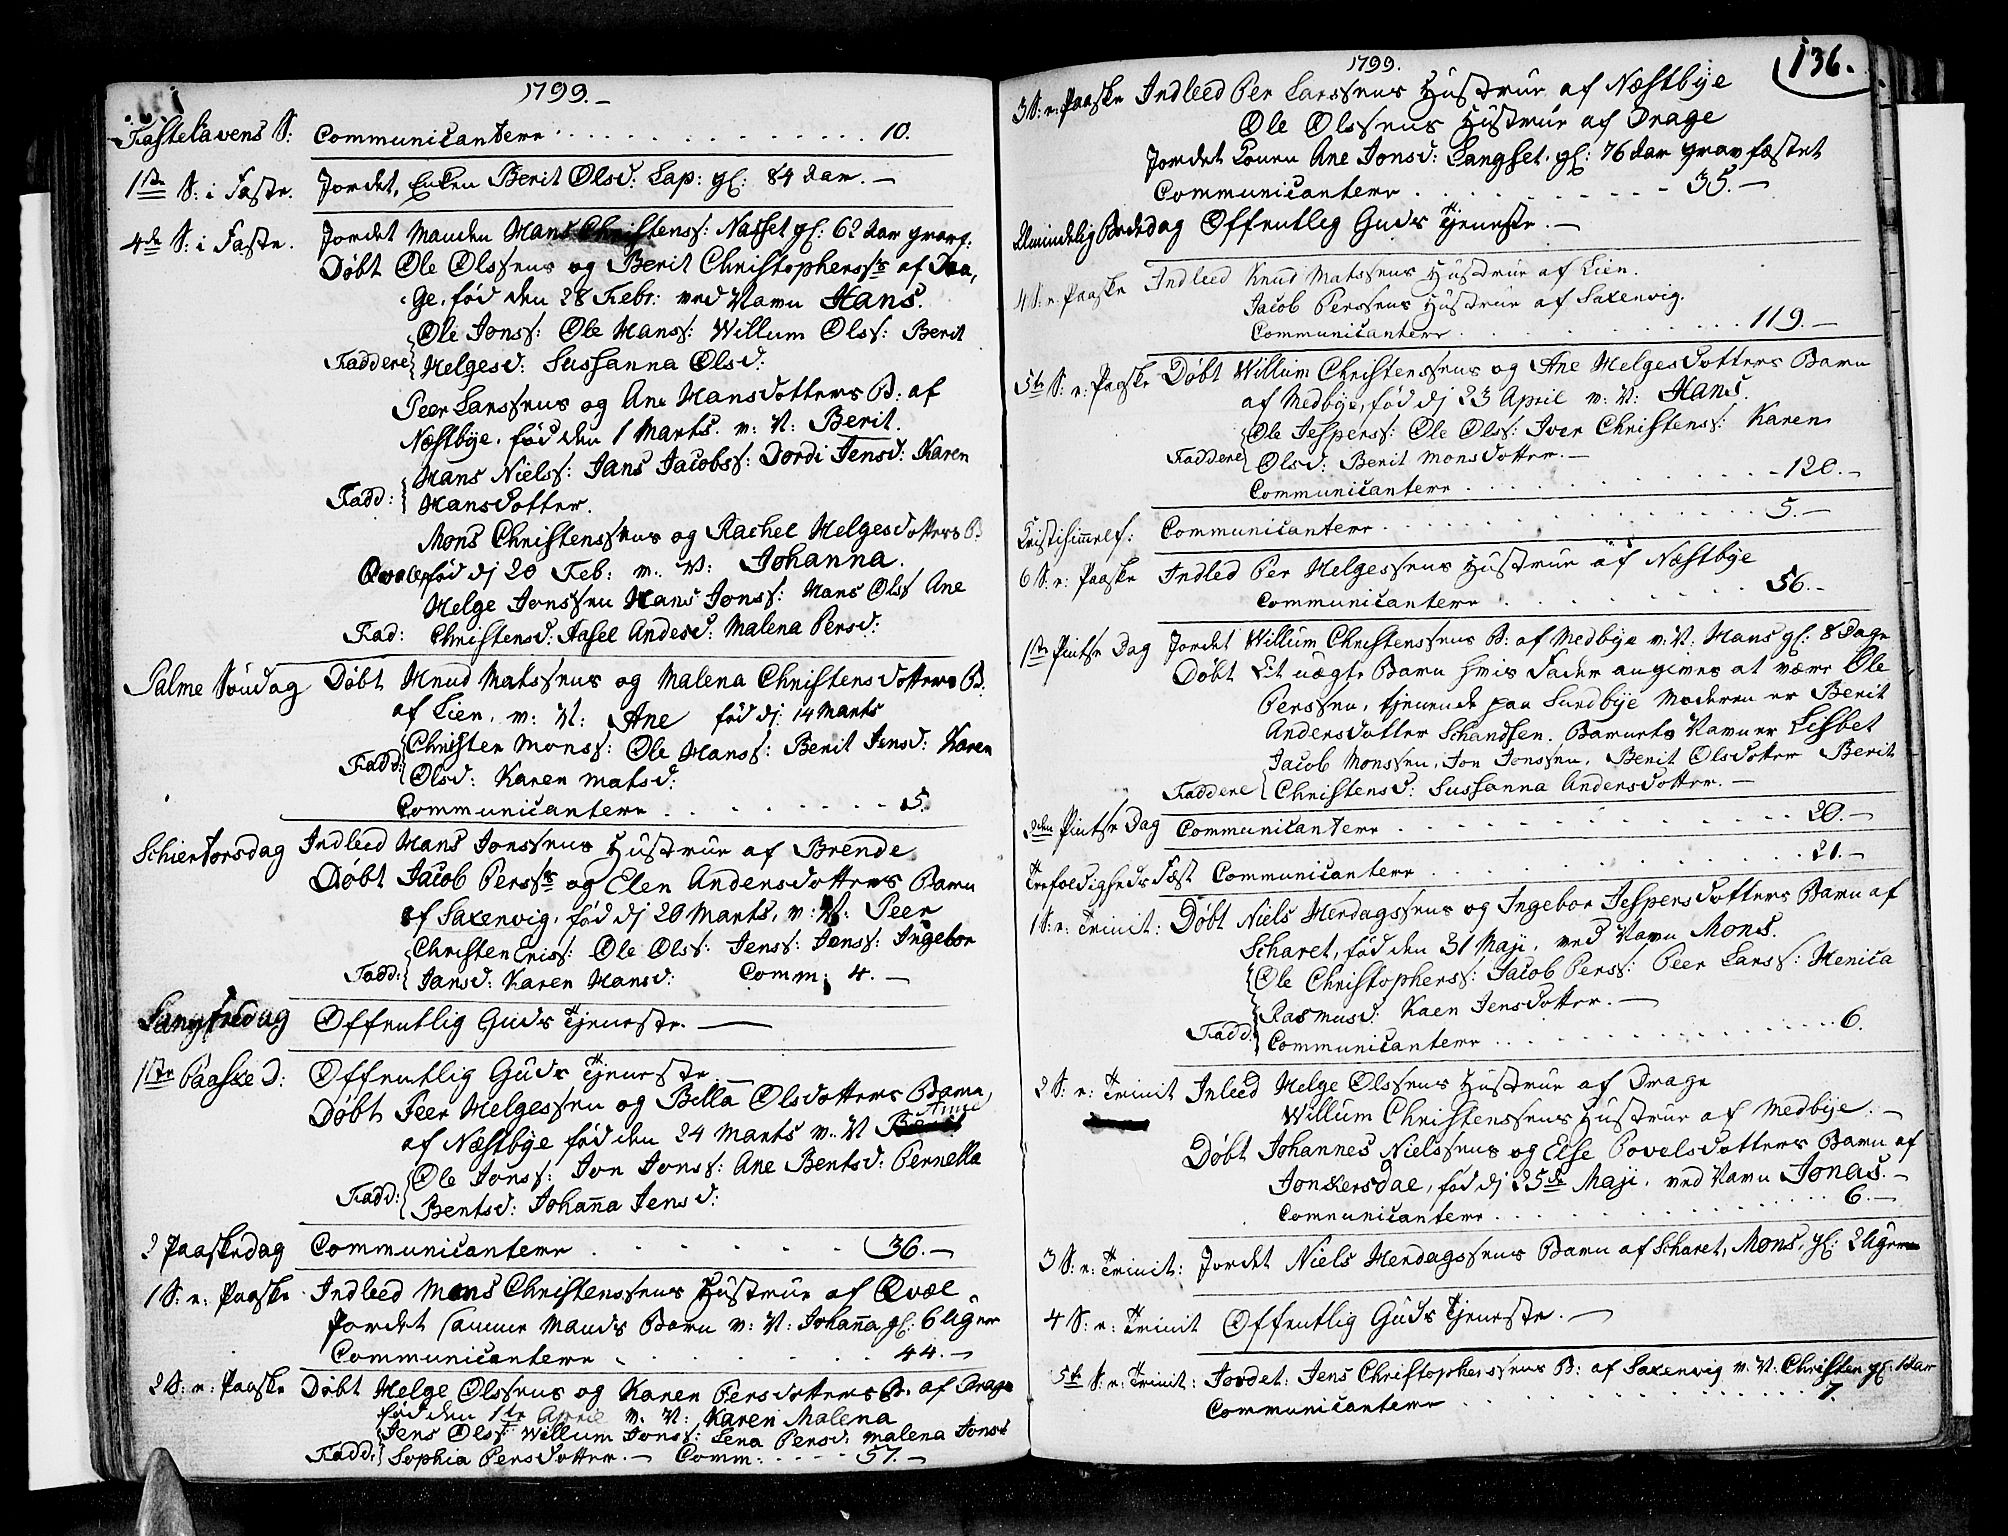 1799.
Fastelavens S: Communicantere 10.
1ste S: i Faste. Jordet, Enken Berit Olsd: Lap: gl: 84 Aar.
4de S: i Faste. Jordet Manden Hans Christenss: Nasset gl: 62 Aar gravf:
Døbt Ole Olssens og Berit Christopherss af Dra,
ge, fød den 28 Febr: ved Navn Hans.
Ole Jonss: Ole Hanss: Willum Olss: Berit
Faddere Helgesd: Sussanna Olsd:
Peer Larssens og Ane Hansdotters B: af
Næstbye. fød den 1 Marts. m: N: Berit.
Hans Nielss: Jans Jacobss: Dordi Jensd: Karen
Fadd: Hansdotter.
Mons Christenssens og Rachel Helgesdotters B
Qvale, fød dj 20 Feb: m: N: Johanna.
Helge Jonssen Hans Jonss: Hans Olss Ane
Fad: Christensd: Aasel Andesd: Malena Persd:
Palme Søndag Døbt Knud Matssens og Malena Christensdotters B.
af Lien, m: N: Ane fød dj: 14 Marts
Christen Monss: Ole Hanss: Berit Jensd: Karen
Fadd: Olsd: Karen Matsd:
Communicantere 5.
Schiertorsdag Indleed Hans Jonssens Hustrue af Brende
Døbt Jacob Perss og Elen Andersdotters Barn
af Saxenvig, fød dj 20 Marts, m: N: Peer
Christen Eriss: Ole Olss: Jenss: Jenss: Ingebor
Fadd: Jansd: Karen Hansd: Comm: 4.
Langfredag Offentlig Guds Tjeneste.
1ste Paaske D: Offentlig Guds Tjeneste
Døbt Peer Helgessen og Bella Olsdotters Barn,
af Næstbye fød den 24 Marts m. N Anne
Ole Jonss: Jon Jonss: Ane Bentsd: Pernella
Fadd: Bentsd: Johanna Jensd:
2 Paaskedag Communicantere 36.
1 S: e: Paaske Indleed Mons Christenssens Hustrue af Qvæl
Jordet samme Mands Barn m: N: Johanna gl: 6 Uger
Communicantere 44.
2 S: e: Paaske Døbt Helge Olssens og Karen Persdotters B. af Drage
fød den 1ste April m. N: Karen Malena
Jens Olss Willum Jonss: Lena Persd: Malena Jonsd
Fadd: Sophia Persdotter. Comm: 57.
1799.
136.
3 S: e: Paaske Indleed Per Larssens Hustrue af Næstbye
Ole Olssens Hustrue af Drage
Jordet Konen Ane Jonsd: Langset. gl: 76 Aar grav fæstet
Communicantere 35.
Almindelig Bededag Offentlig Guds Tjeneste.
4 S: e: Paaske Indleed Knud Matssens Hustrue af Lien.
Jacob Perssens Hustrue af Saxenvig.
Communicantere 119.
5te S: e: Paaske Døbt Willum Christenssens og Ane Helgesdotters Barn
af Medbye, fød dj 23 April m: N: Hans.
Ole Jesperss: Ole Olss: Iver Christenss: Karen
Faddere Olsd: Berit Monsdotter.
Communicantere 120.
Cristihimmelf: Communicantere 5.
6 S: e: Paaske Indled Per Helgessens Hustrue af Næstbye
Communicantere 56.
1ste Pintse Dag Jordet Willum Christenssens B: af Medbye m: N: Hans gl: 8 Dage
Døbt Et uægte Barn hvis Fader angives at være Ole
Perssen, tjenende paa Sundbye Moderen er Berit
Andersdotter Schandsen. Barnets Navn er Lisbet
Jacob Monssen, Jon Jonssen, Berit Olsdotter Berit
Faddere Christensd: Sussanna Andersdotter.
2den Pintse Dag Communicantere 20.
Trefoldigheds Fæst Communicantere 21.
1 S: e: Trinit: Døbt Niels Herdagssens og Ingebor Jespersdotters Barn af
Scharet, fød den 31 Maji, ved Navn Mons.
Ole Christopherss: Jacob Perss: Peer Larss: Henica
Rasmusd: Kaen Jensdotter.
Fadd: Communicantere 6.
2 S: e: Trinit Inleed Helge Olssens Hustrue af Drage
Willum Christenssens Hustrue af Medbye.
Døbt Johannes Nielssens og Else Povelsdotters Barn af
Jonkersdal, fød dj 25de Maji, ved Navn Jonas.
Communicantere 6.
3 S: e: Trinit: Jordet Niels Herdagssens Barn af Scharet, Mons, gl: 2 Uger
4 S: e: Trinit Offentlig Guds Tjeneste.
5te S: e: Trinit: Jordet: Jens Christopherssens B: af Saxenvig m: N: Christen gl: 1 Aar
Communicantere 7.